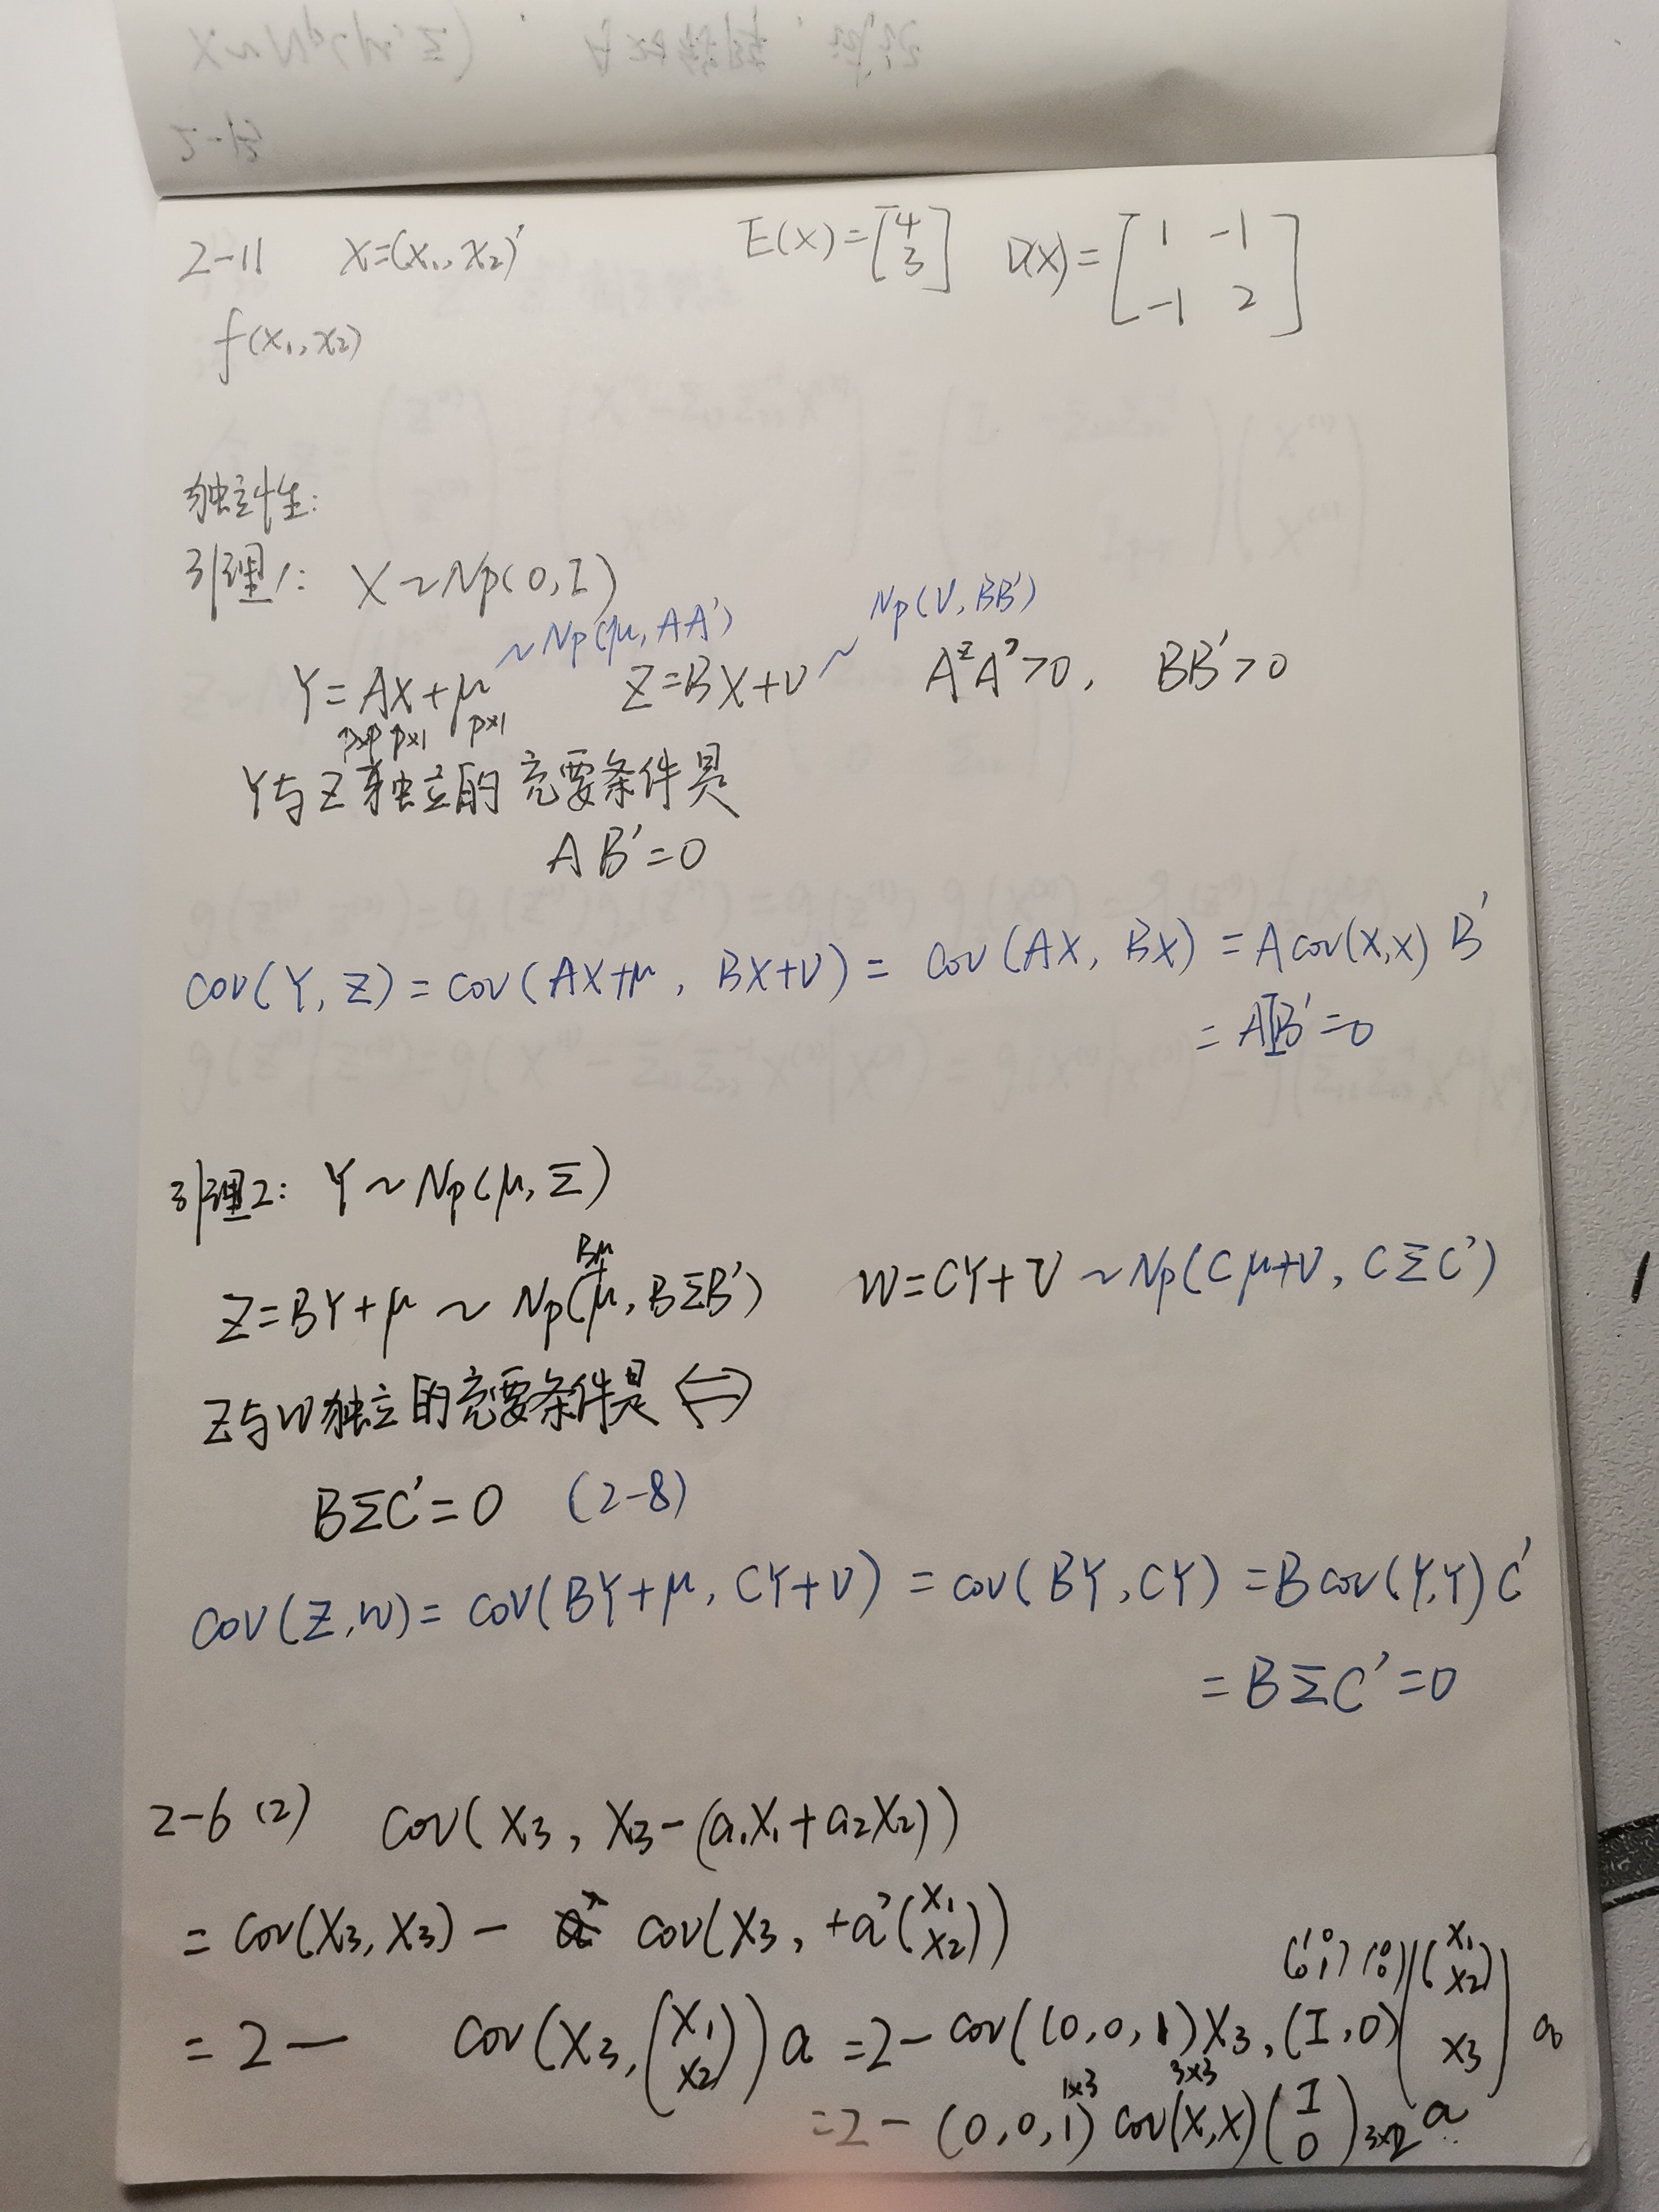 2-11 X=(X₁, X₂)' E(X)=[4 3] D(X)=[1 -1 -1 2]
f(x₁, x₂)
独立性:
引理1: X~Np(0, I)
Y=AX+μ ~Np(μ, AA') Z=BX+ν ~ Np(ν, BB') AA'>0, BB'>0
p×p p×1 p×1
Y与Z独立的充要条件是
AB'=0
cov(Y, Z) = cov(AX+μ, BX+ν) = cov(AX, BX) = A cov(X,X) B'
= AIB'=0
引理2: Y~Np(μ, Σ)
Z=BY+μ ~ Np(Bμ+μ, BΣB') W=CY+ν ~Np(Cμ+ν, CΣC')
Z与W独立的充要条件是 ⟺
BΣC'=0 (2-8)
cov(Z,W)= cov(BY+μ, CY+ν) = cov(BY, CY) =B cov(Y,Y)C'
= BΣC'=0
2-6 (2) cov(X₃, X₃-(a₁X₁+a₂X₂))
= cov(X₃, X₃) - cov(X₃, +a'(X₁ X₂))
(1 0 0 1) (0 0)
= 2 - cov(X₃, (X₁ X₂)) a =2- cov((0,0,1)X₃, (I,0)(X₁ X₂ X₃)) a
1×3 3×3
=2- (0,0,1) cov(X,X) (I 0)3×2 a